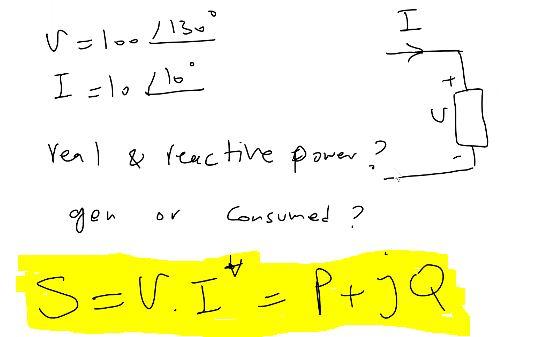 V = 100 ∠130°
I = 10 ∠10°
I
+
V
-
real & reactive power?
gen or consumed?
S = V.I* = P + jQ